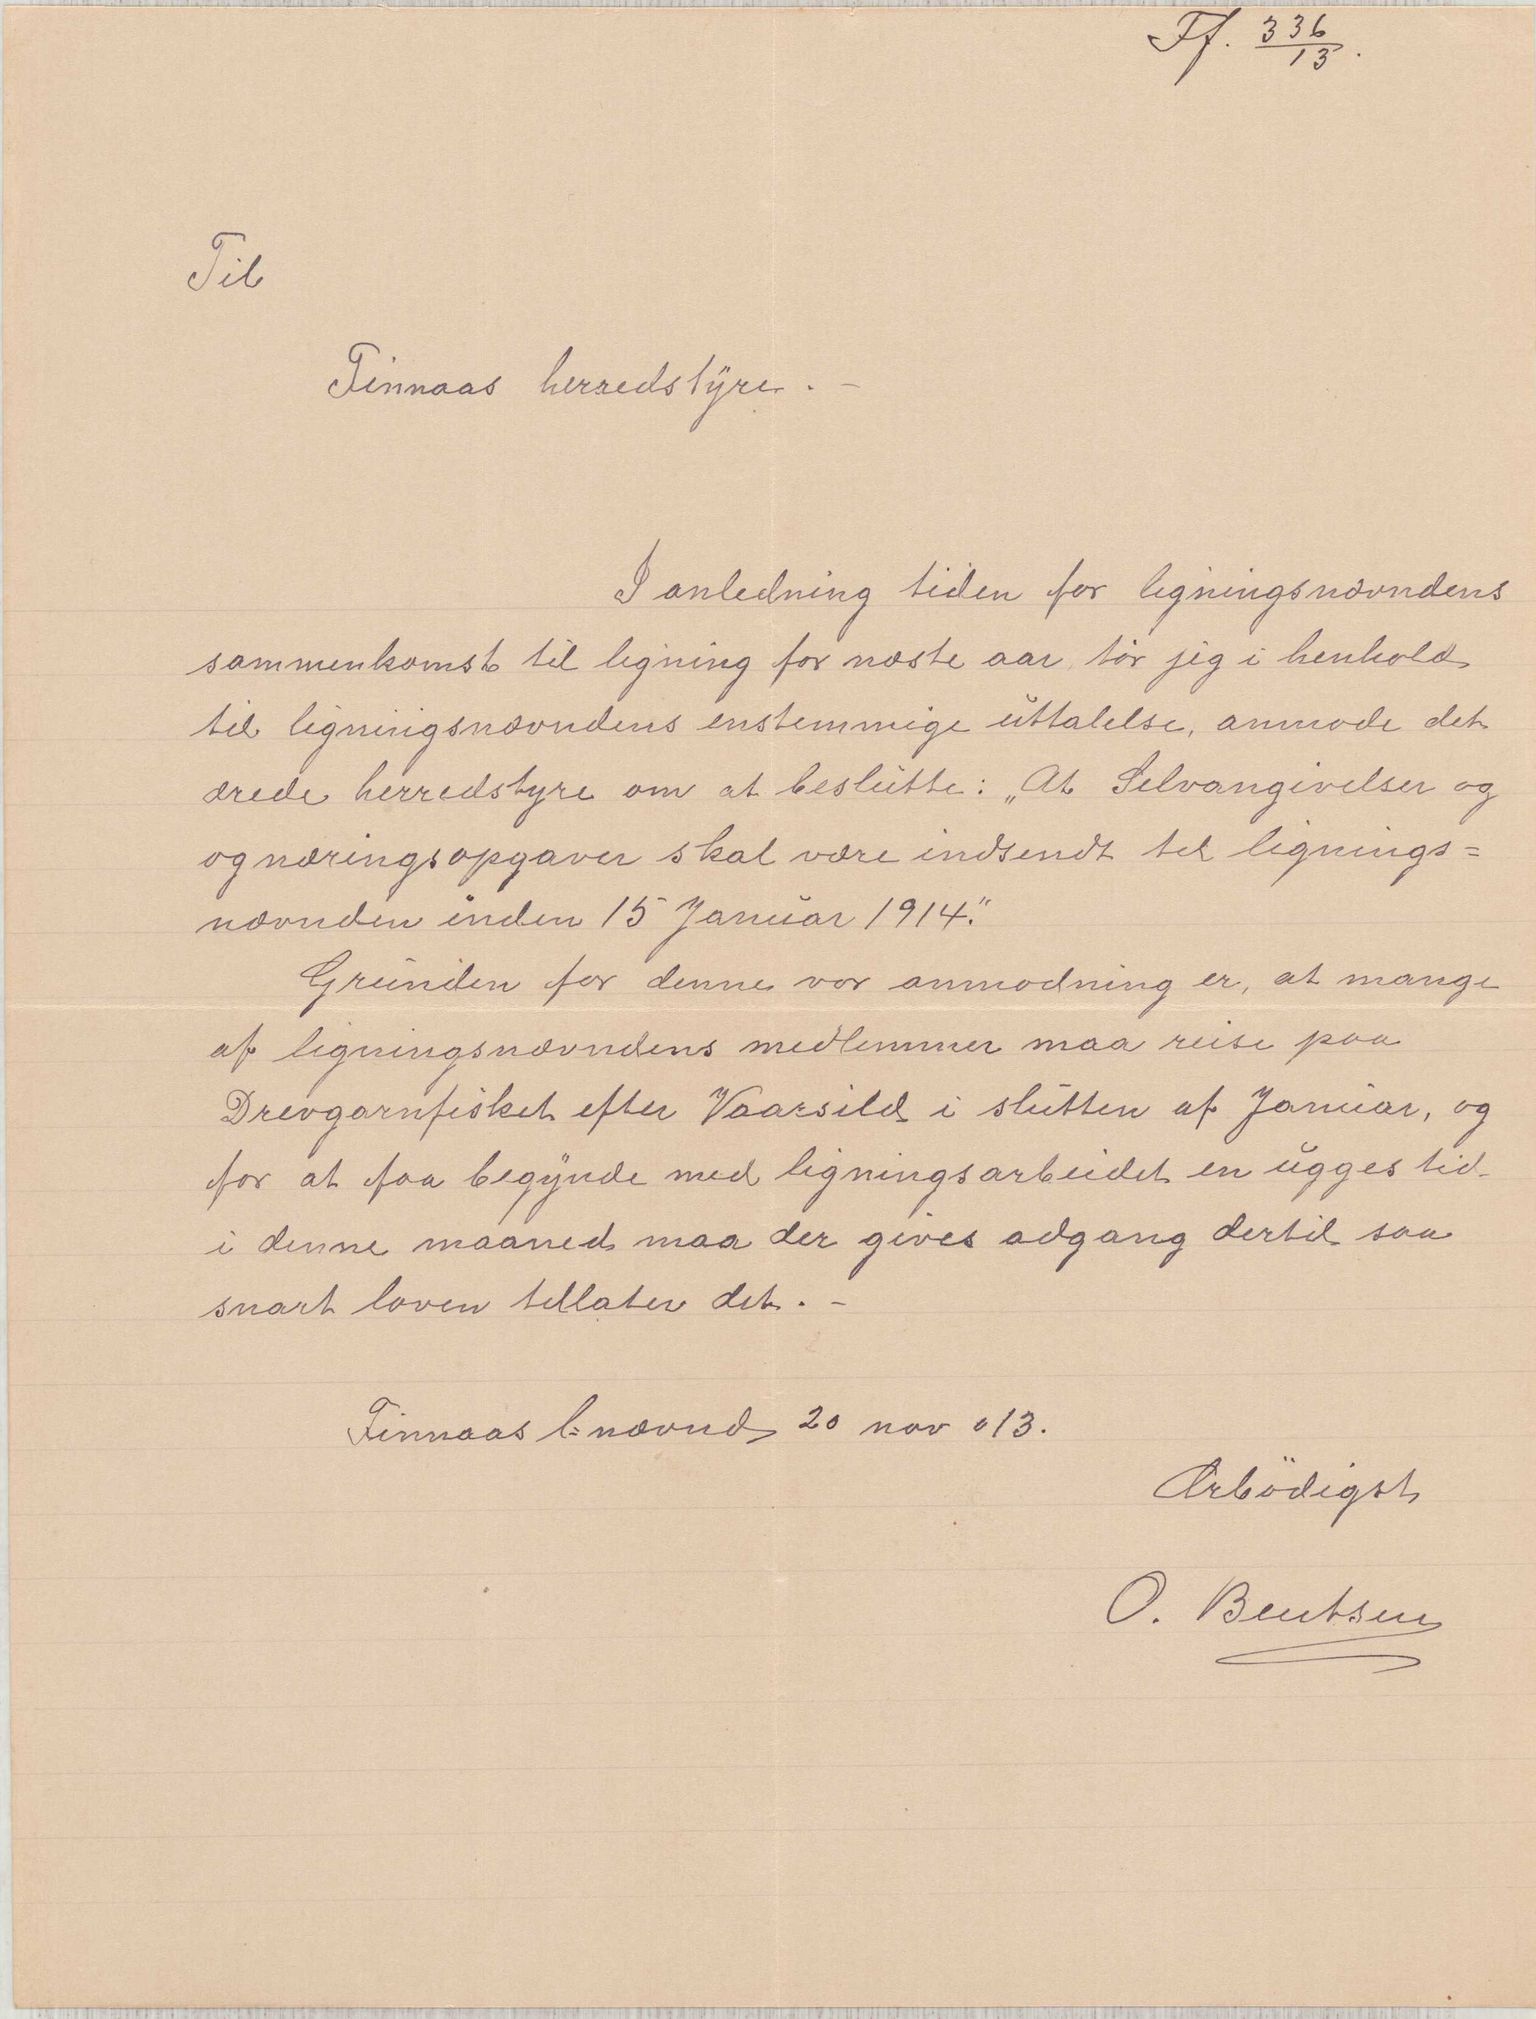 Ff. 336/13.
Til
Finnaas herredstyre. -
I anledning tiden for ligningsnævndens
sammenkomst til ligning for næste aar, tör jeg i henhold
til ligningsnævndens enstemmige uttalelse, anmode det
ærede herredstyre om at beslutte: „At Selvangivelser og
og næringsopgaver skal være indsendt til lignings=
nævnden inden 15 Januar 1914."
Grunden for denne vor anmodning er, at mange
af ligningsnævndens medlemmer maa reise paa
Drevgarnfisket efter Vaarsild i slutten af Januar, og
for at faa begynde med ligningsarbeidet en ugges tid
i denne maaned maa der gives adgang dertil saa
snart loven tillater det. -
Finnaas l:nævnd 20 nov 013.
Ærbödigst
O. Bentsen